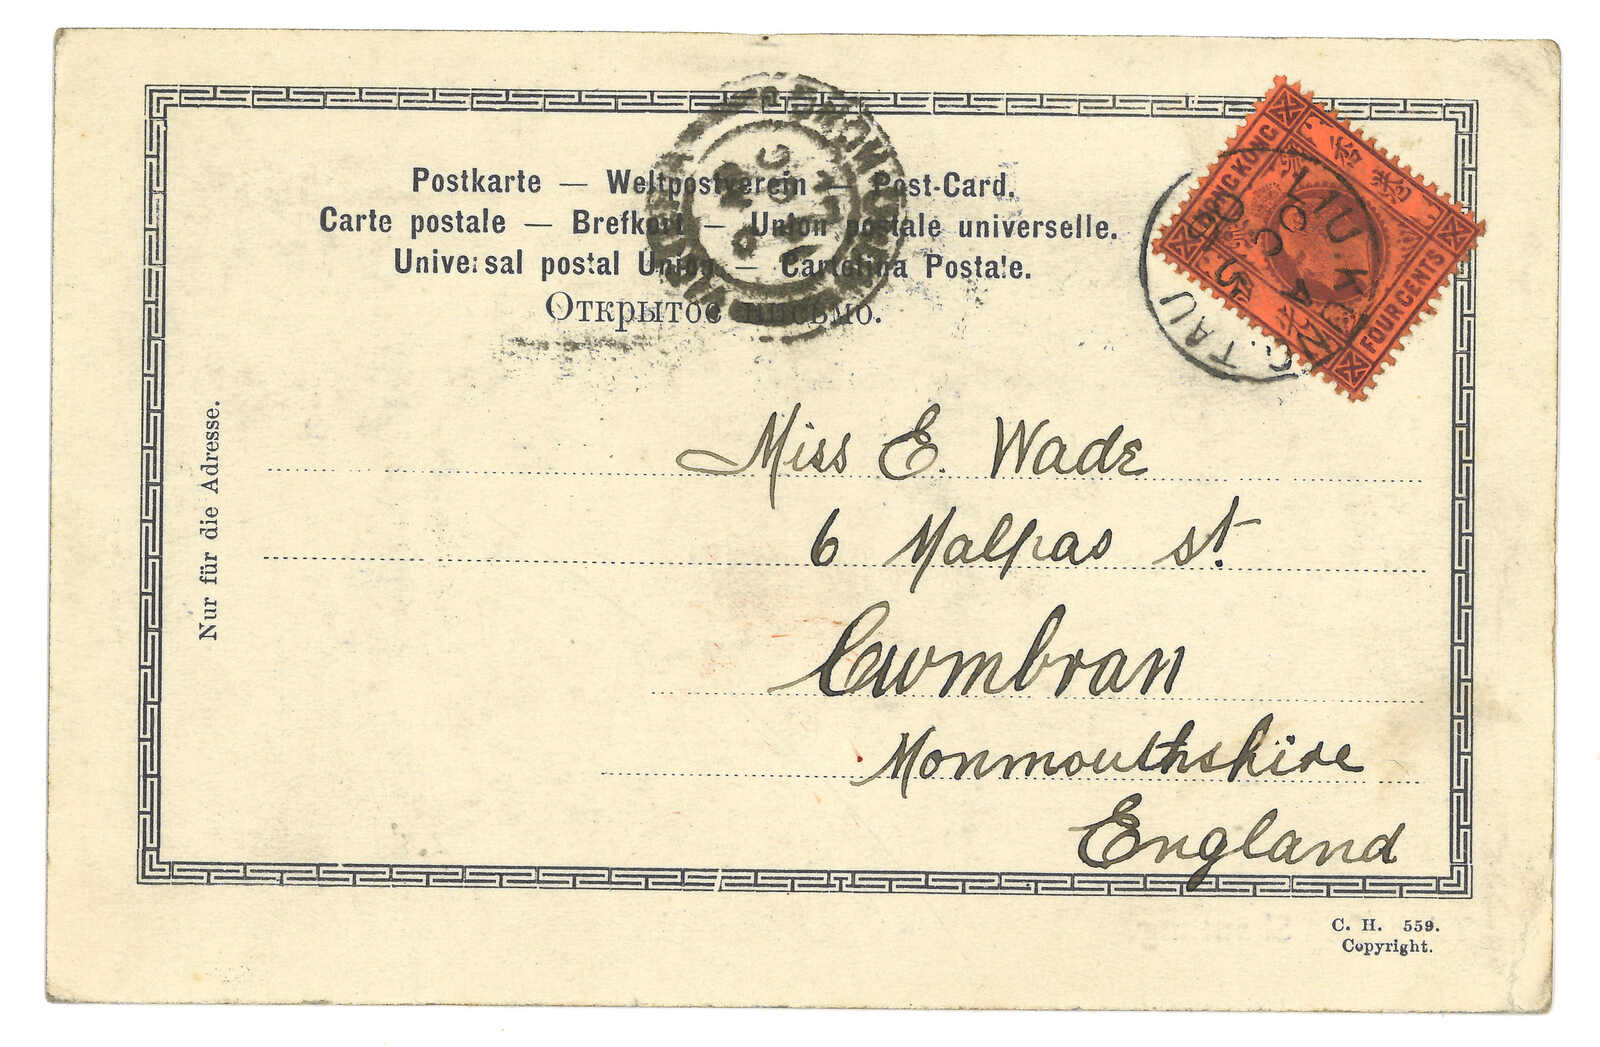 Postkarte — Weltpostverein — Post-Card.
Carte postale — Brefkort — Union postale universelle.
Universal postal Union — Cartolina Postale.
Открытое письмо.
HONG KONG
FOUR CENTS
LIU KUNG TAU
A
5
OC
03
Nur für die Adresse.
Miss E. Wade
6 Malpas st.
Cwmbran
Monmouthshire
England
C. H. 559.
Copyright.